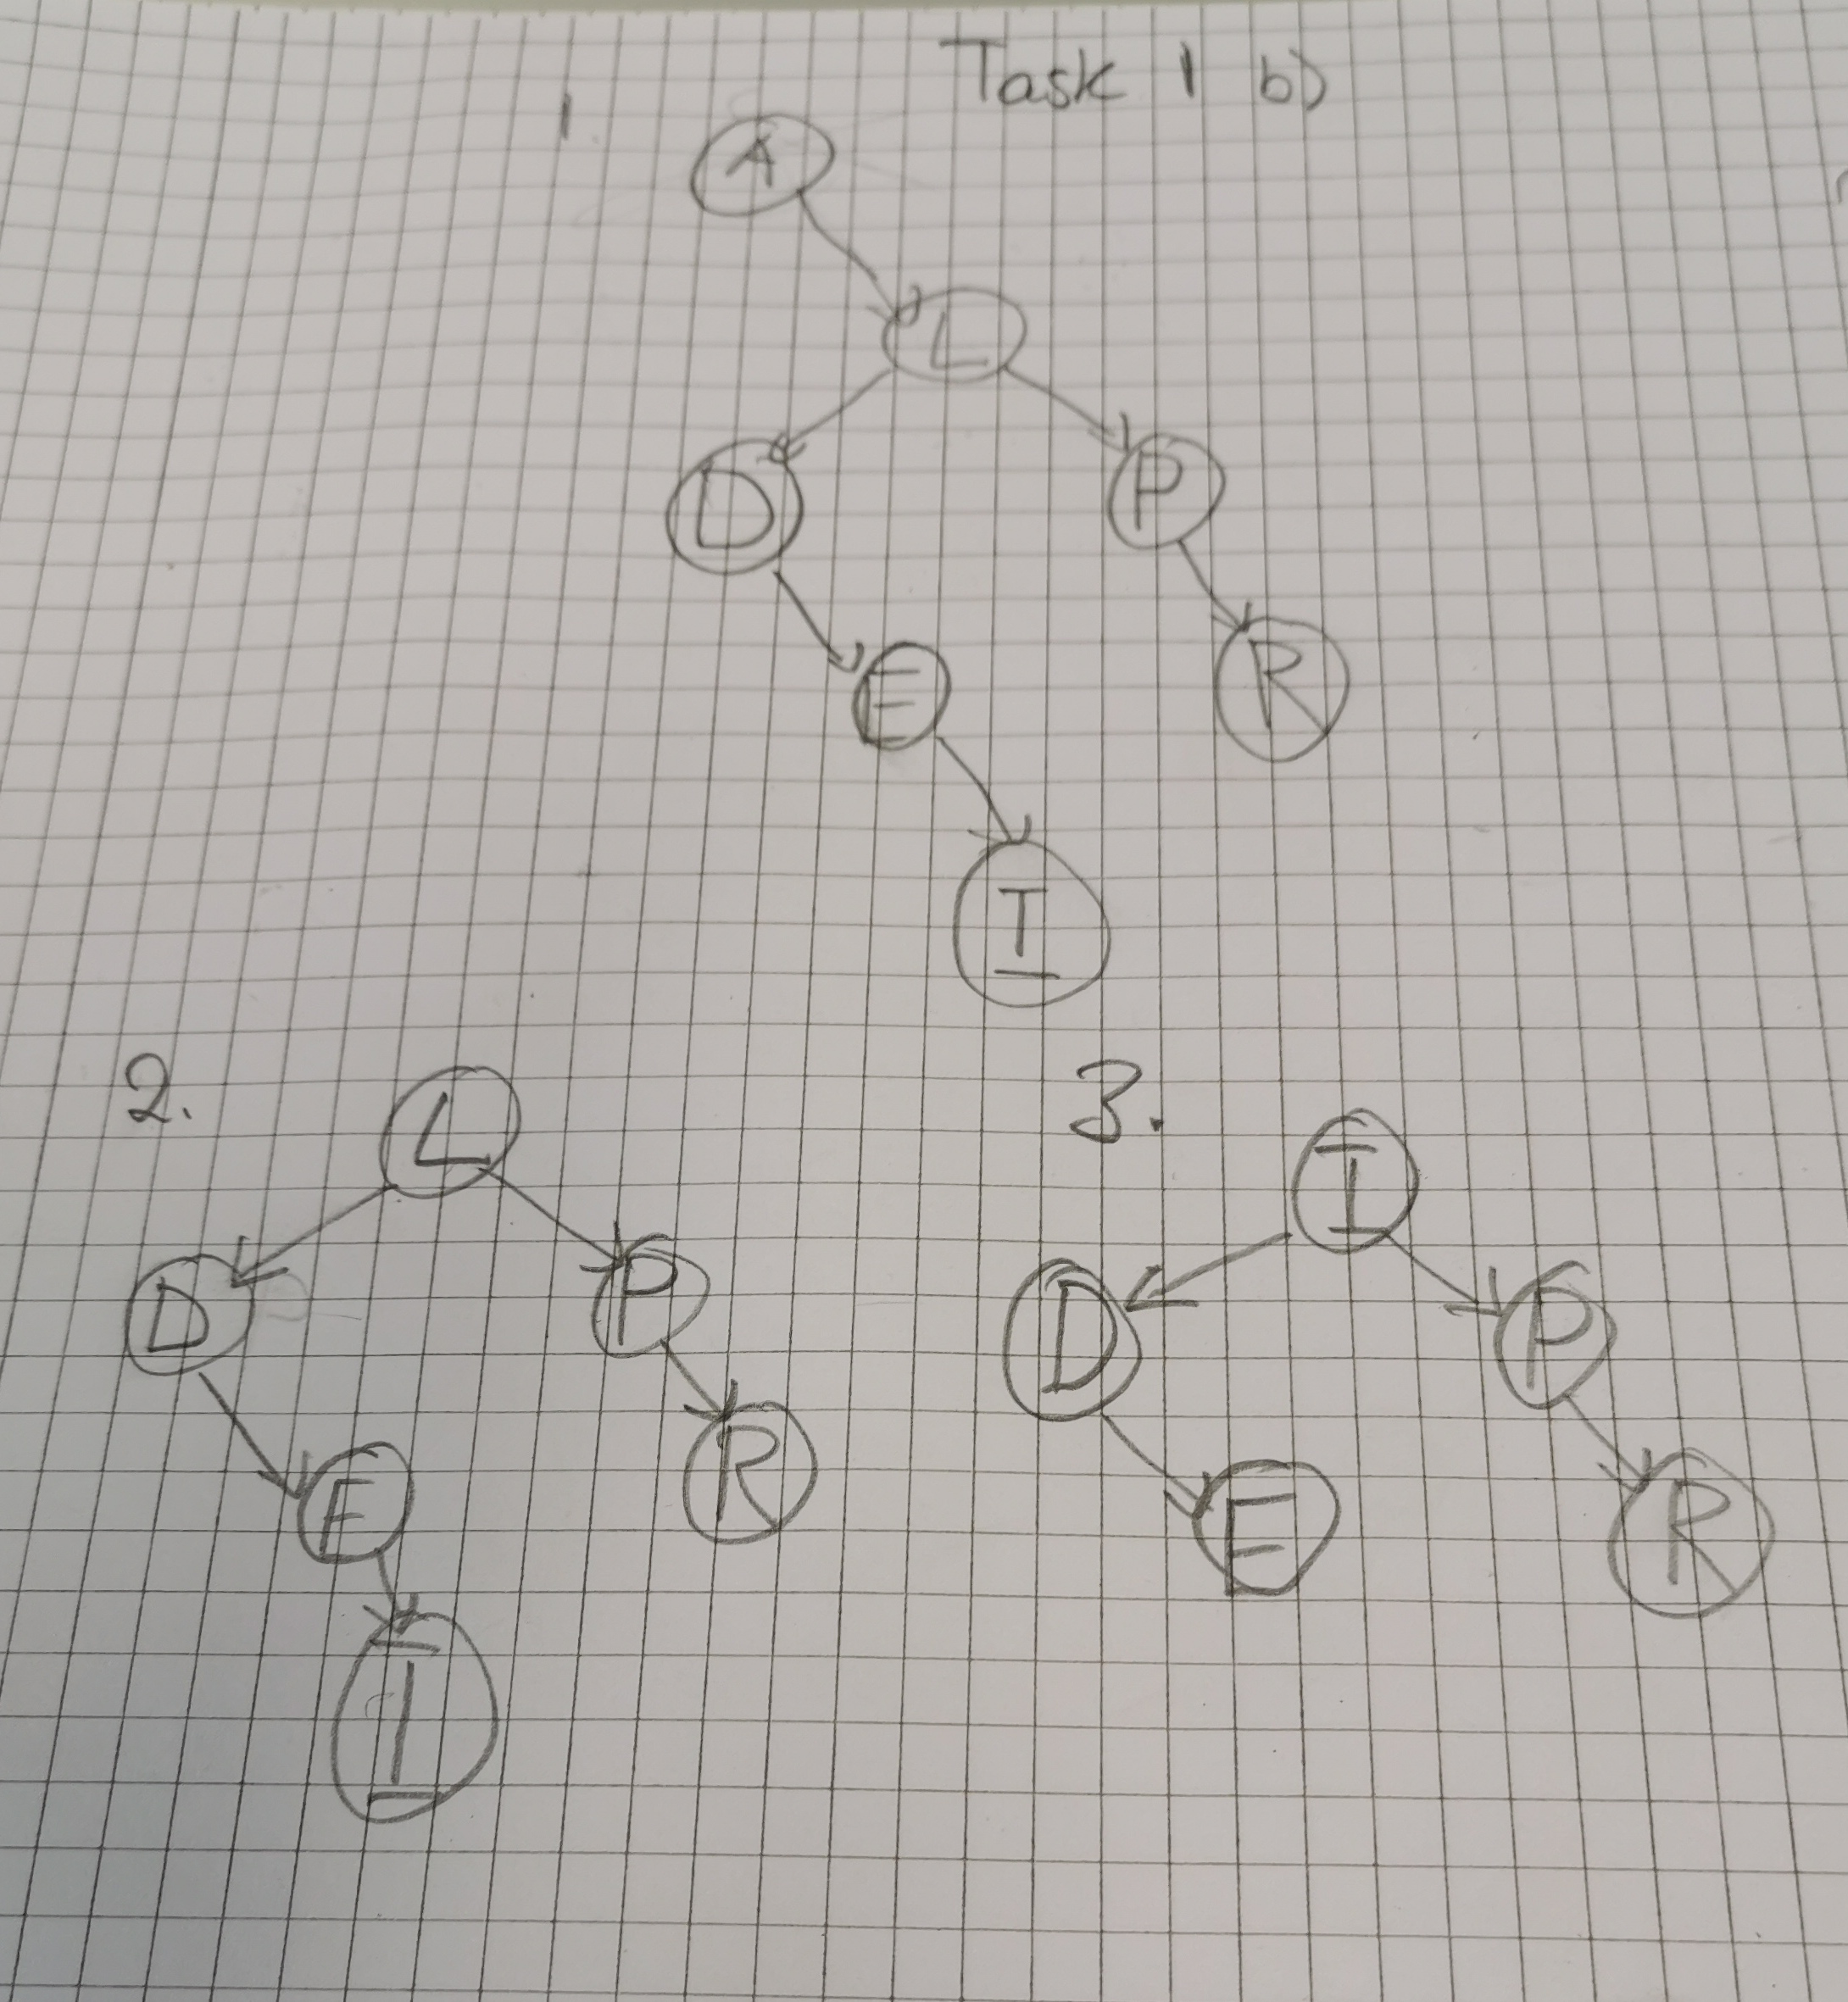 Task 1 b)
1
A
L
D P
E R
I
2.
L
D P
E R
I
3.
I
D P
E R